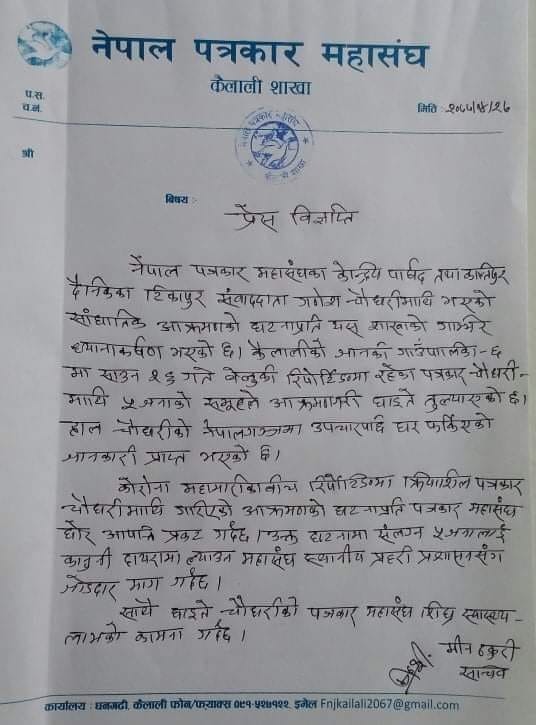 नेपाल पत्रकार महासंघ
कैलाली शाखा
प.स.
च.नं.
मिति : २०७७/४/२७
श्री
बिषय :-
प्रेस विज्ञप्ति
नेपाल पत्रकार महासंघका केन्द्रिय पार्षद तथा कान्तिपुर
दैनिकका टिकापुर संवाददाता गणेश चौधरीमाथि भएको
सांघातिक आक्रमणको घटनाप्रति यस शाखाको गम्भिर
ध्यानाकर्षण भएको छ। कैलालीको जानकी गाउँपालिका-६
मा साउन २६ गते बेलुकी रिपोर्टिङमा रहेका पत्रकार चौधरी-
माथि ५ जनाको समूहले आक्रमणगरी घाइते तुल्याएको छ।
हाल चौधरीको नेपालगञ्जमा उपचारपछि घर फर्किएको
जानकारी प्राप्त भएको छ।
कोरोना महामारीकाबीच रिपोर्टिङमा क्रियाशिल पत्रकार
चौधरीमाथि गरिएको आक्रमणको घटनाप्रति पत्रकार महासंघ
घोर आपत्ति प्रकट गर्दछ। उक्त घटनामा संलग्न ५ जनालाई
कानुनी दायरामा ल्याउन महासंघ स्थानीय प्रहरी प्रशासनसंग
जोडदार माग गर्दछ।
साथै घाइते चौधरीको पत्रकार महासंघ शिघ्र स्वास्थ्य-
लाभको कामना गर्दछ।
मीन ठकुरी
सचिव
कार्यालय : धनगढी, कैलाली फोन/फ्याक्स ०९१-५२७१२२, इमेल Fnjkailali2067@gmail.com